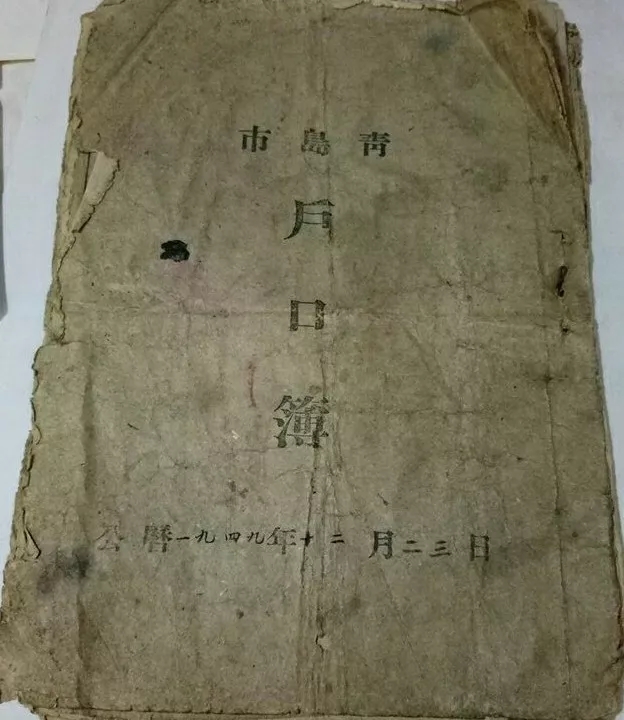 青島市
戶
口
簿
公曆一九四九年十二月二三日